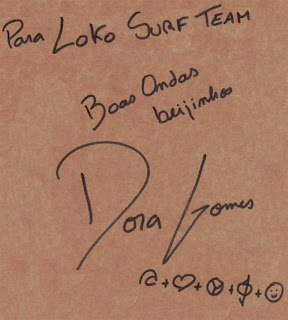 Para LOKO SURF TEAM
Boas Ondas
beijinhos
Dora Gomes